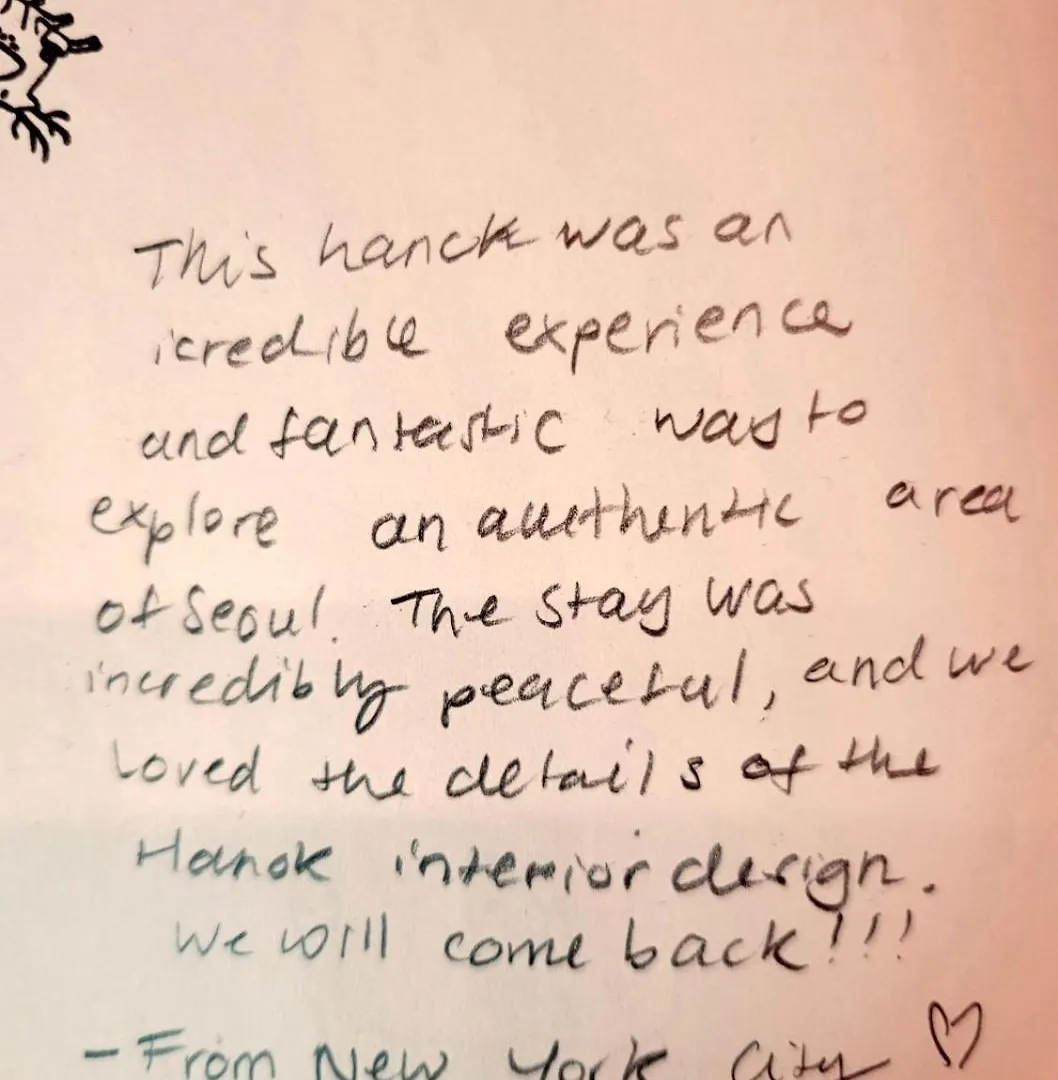 This hanok was an
icredible experience
and fantastic way to
explore an auethentic area
of Seoul. The stay was
incredibly peaceful, and we
loved the details of the
Hanok interior design.
We will come back!!!
- From New York City ♡